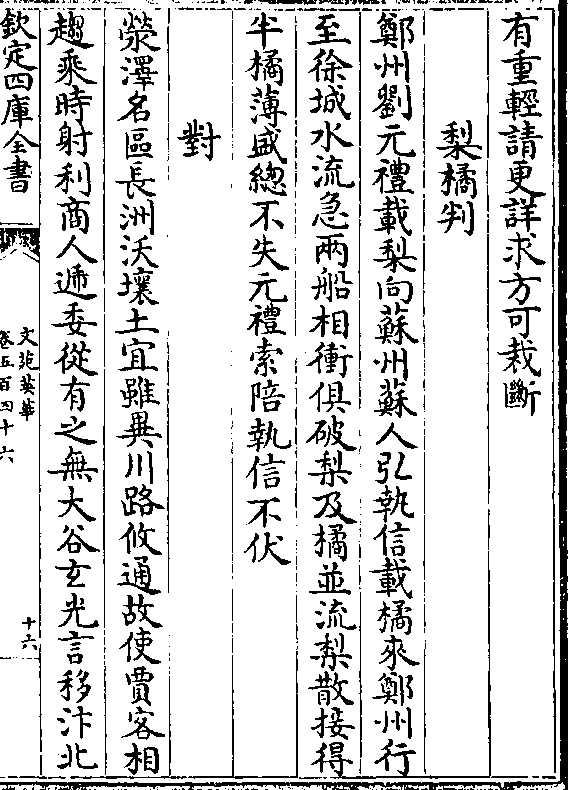 有重輕請更詳求方可裁斷
梨橘判
鄭州劉元禮載梨向蘇州蘇人弘執信載橘來鄭州行
至徐城水流急兩船相衝俱破梨及橘並流梨散接得
半橘薄盛總不失元禮索陪執信不伏
對
滎澤名區長洲沃壤土宜雖異川路攸通故使賈客相
趨乘時射利商人遞委從有之無大谷玄光言移汴北
欽定四庫全書
文苑英華
卷五百四十六
十六